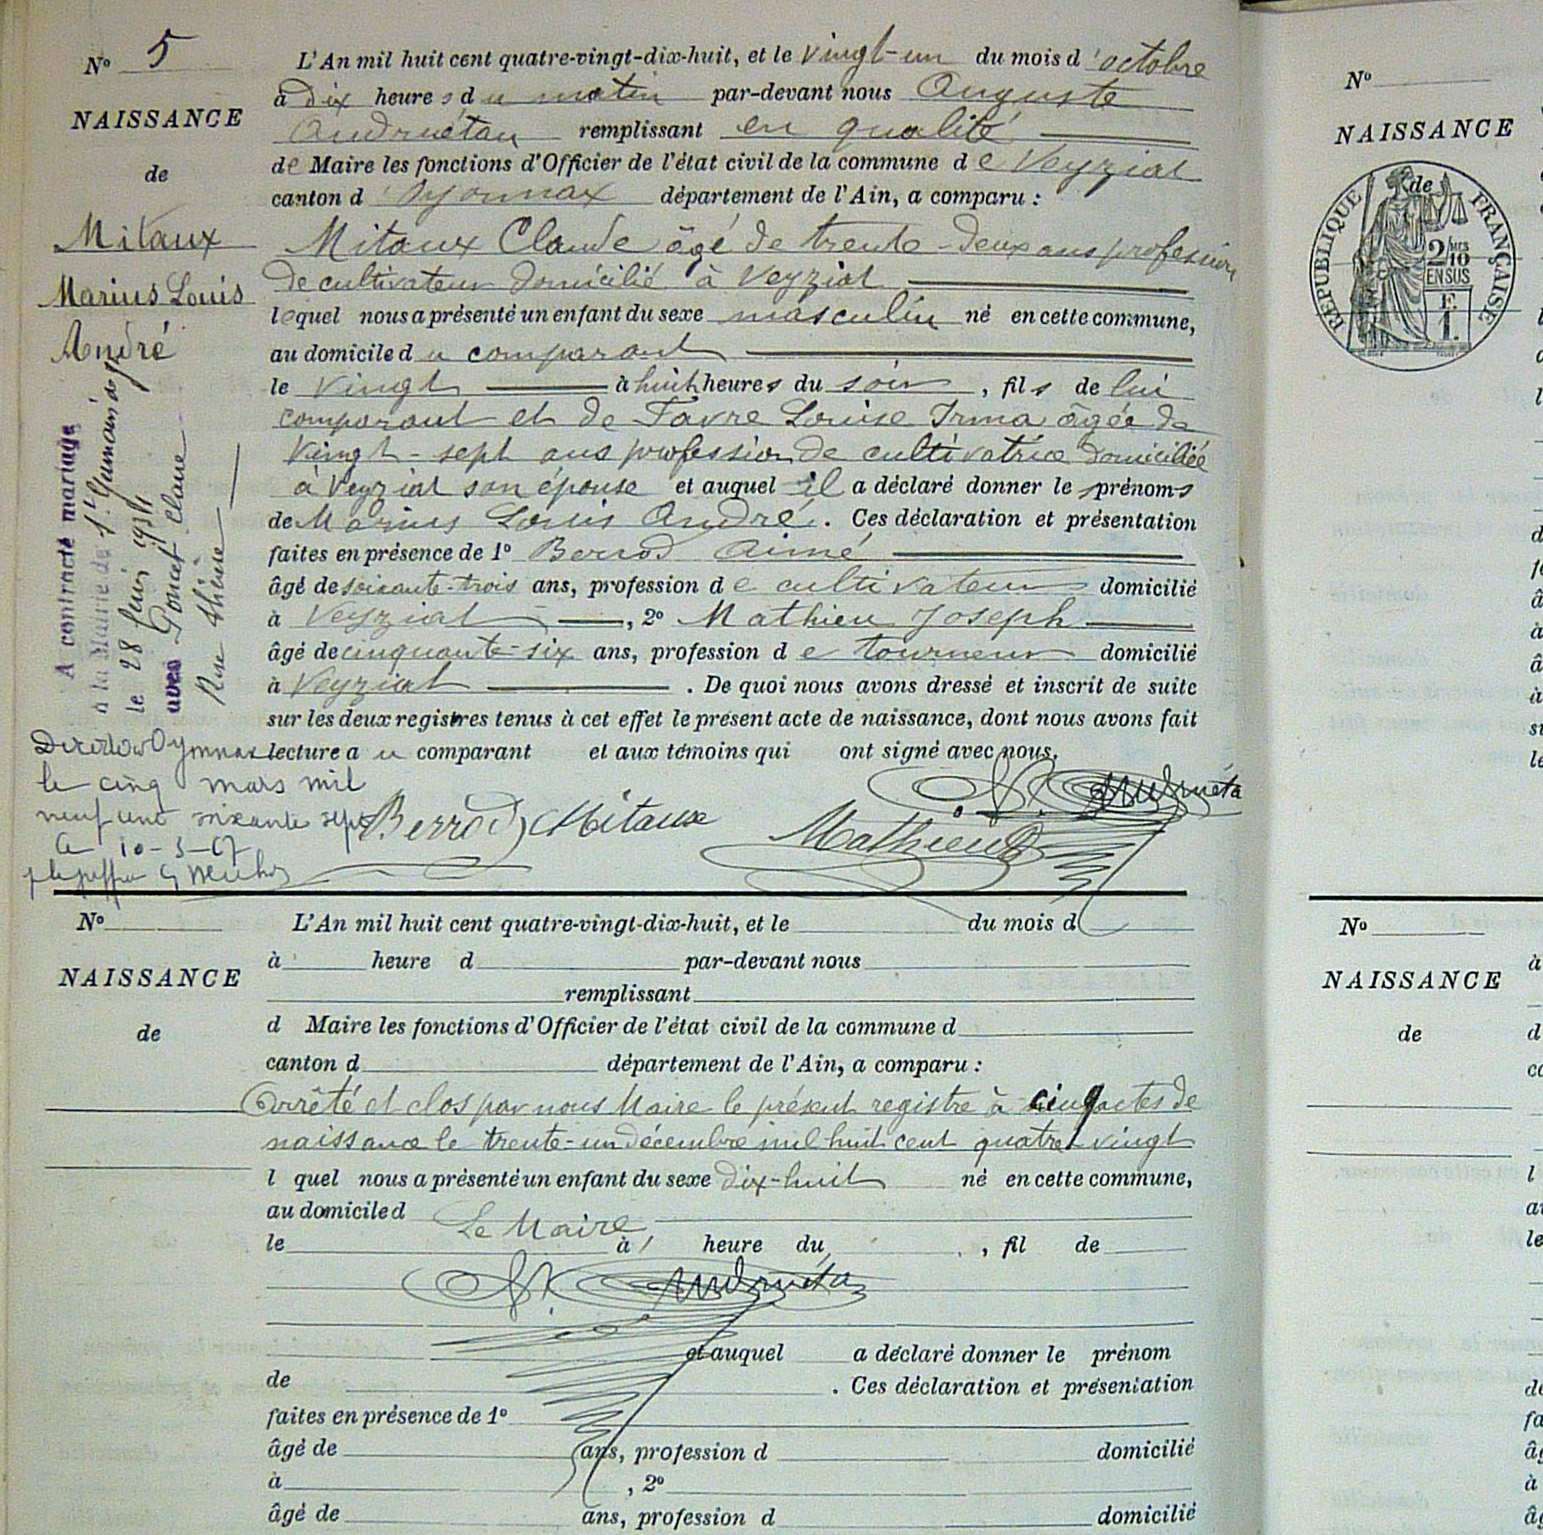 N° 5
NAISSANCE
de
Mitaux
Marius Louis
André
A contracté mariage
à la Mairie de St Germain de J
le 28 Juin 1931
avec Goncet Claue
Rse Athénée
Décédé à Oyonnax
le cinq mars mil
neuf cent soixante sept
Le 10-3-67
L'An mil huit cent quatre-vingt-dix-huit, et le vingt-un du mois d'octobre
à dix heures du matin par-devant nous Auguste
Andruétan remplissant en qualité
de Maire les fonctions d'Officier de l'état civil de la commune de Veyziat
canton d'Oyonnax département de l'Ain, a comparu :
Mitaux Claude âgé de trente-deux ans profession
de cultivateur domicilié à Veyziat
lequel nous a présenté un enfant du sexe masculin né en cette commune,
au domicile du comparant
le vingt à huit heures du soir, fils de lui
comparant et de Favre Louise Irma âgée de
vingt-sept ans profession de cultivatrice domiciliée
à Veyziat son épouse et auquel il a déclaré donner le prénoms
de Marius Louis André. Ces déclaration et présentation
faites en présence de 1° Berrod Aimé
âgé de soixante-trois ans, profession de cultivateur domicilié
à Veyziat, 2° Mathieu Joseph
âgé de cinquante-six ans, profession de tourneur domicilié
à Veyziat. De quoi nous avons dressé et inscrit de suite
sur les deux registres tenus à cet effet le présent acte de naissance, dont nous avons fait
lecture au comparant et aux témoins qui ont signé avec nous.
Berrod Mitaux Mathieu Andruéta
N°
NAISSANCE
de
L'An mil huit cent quatre-vingt-dix-huit, et le du mois d
à heure d par-devant nous
remplissant
d Maire les fonctions d'Officier de l'état civil de la commune d
canton d département de l'Ain, a comparu :
Arrêté et clos par nous Maire le présent registre à cinq actes de
naissance le trente-un décembre mil huit cent quatre vingt
l quel nous a présenté un enfant du sexe dix-huit né en cette commune,
au domicile d
Le Maire
le à heure du , fil de
Andruéta
et auquel a déclaré donner le prénom
de . Ces déclaration et présentation
faites en présence de 1°
âgé de ans, profession d domicilié
à , 2°
âgé de ans, profession d domicilié
N°
NAISSANCE
de
RÉPUBLIQUE FRANÇAISE
2/10
EN SUS
F.
1.
N°
NAISSANCE
de